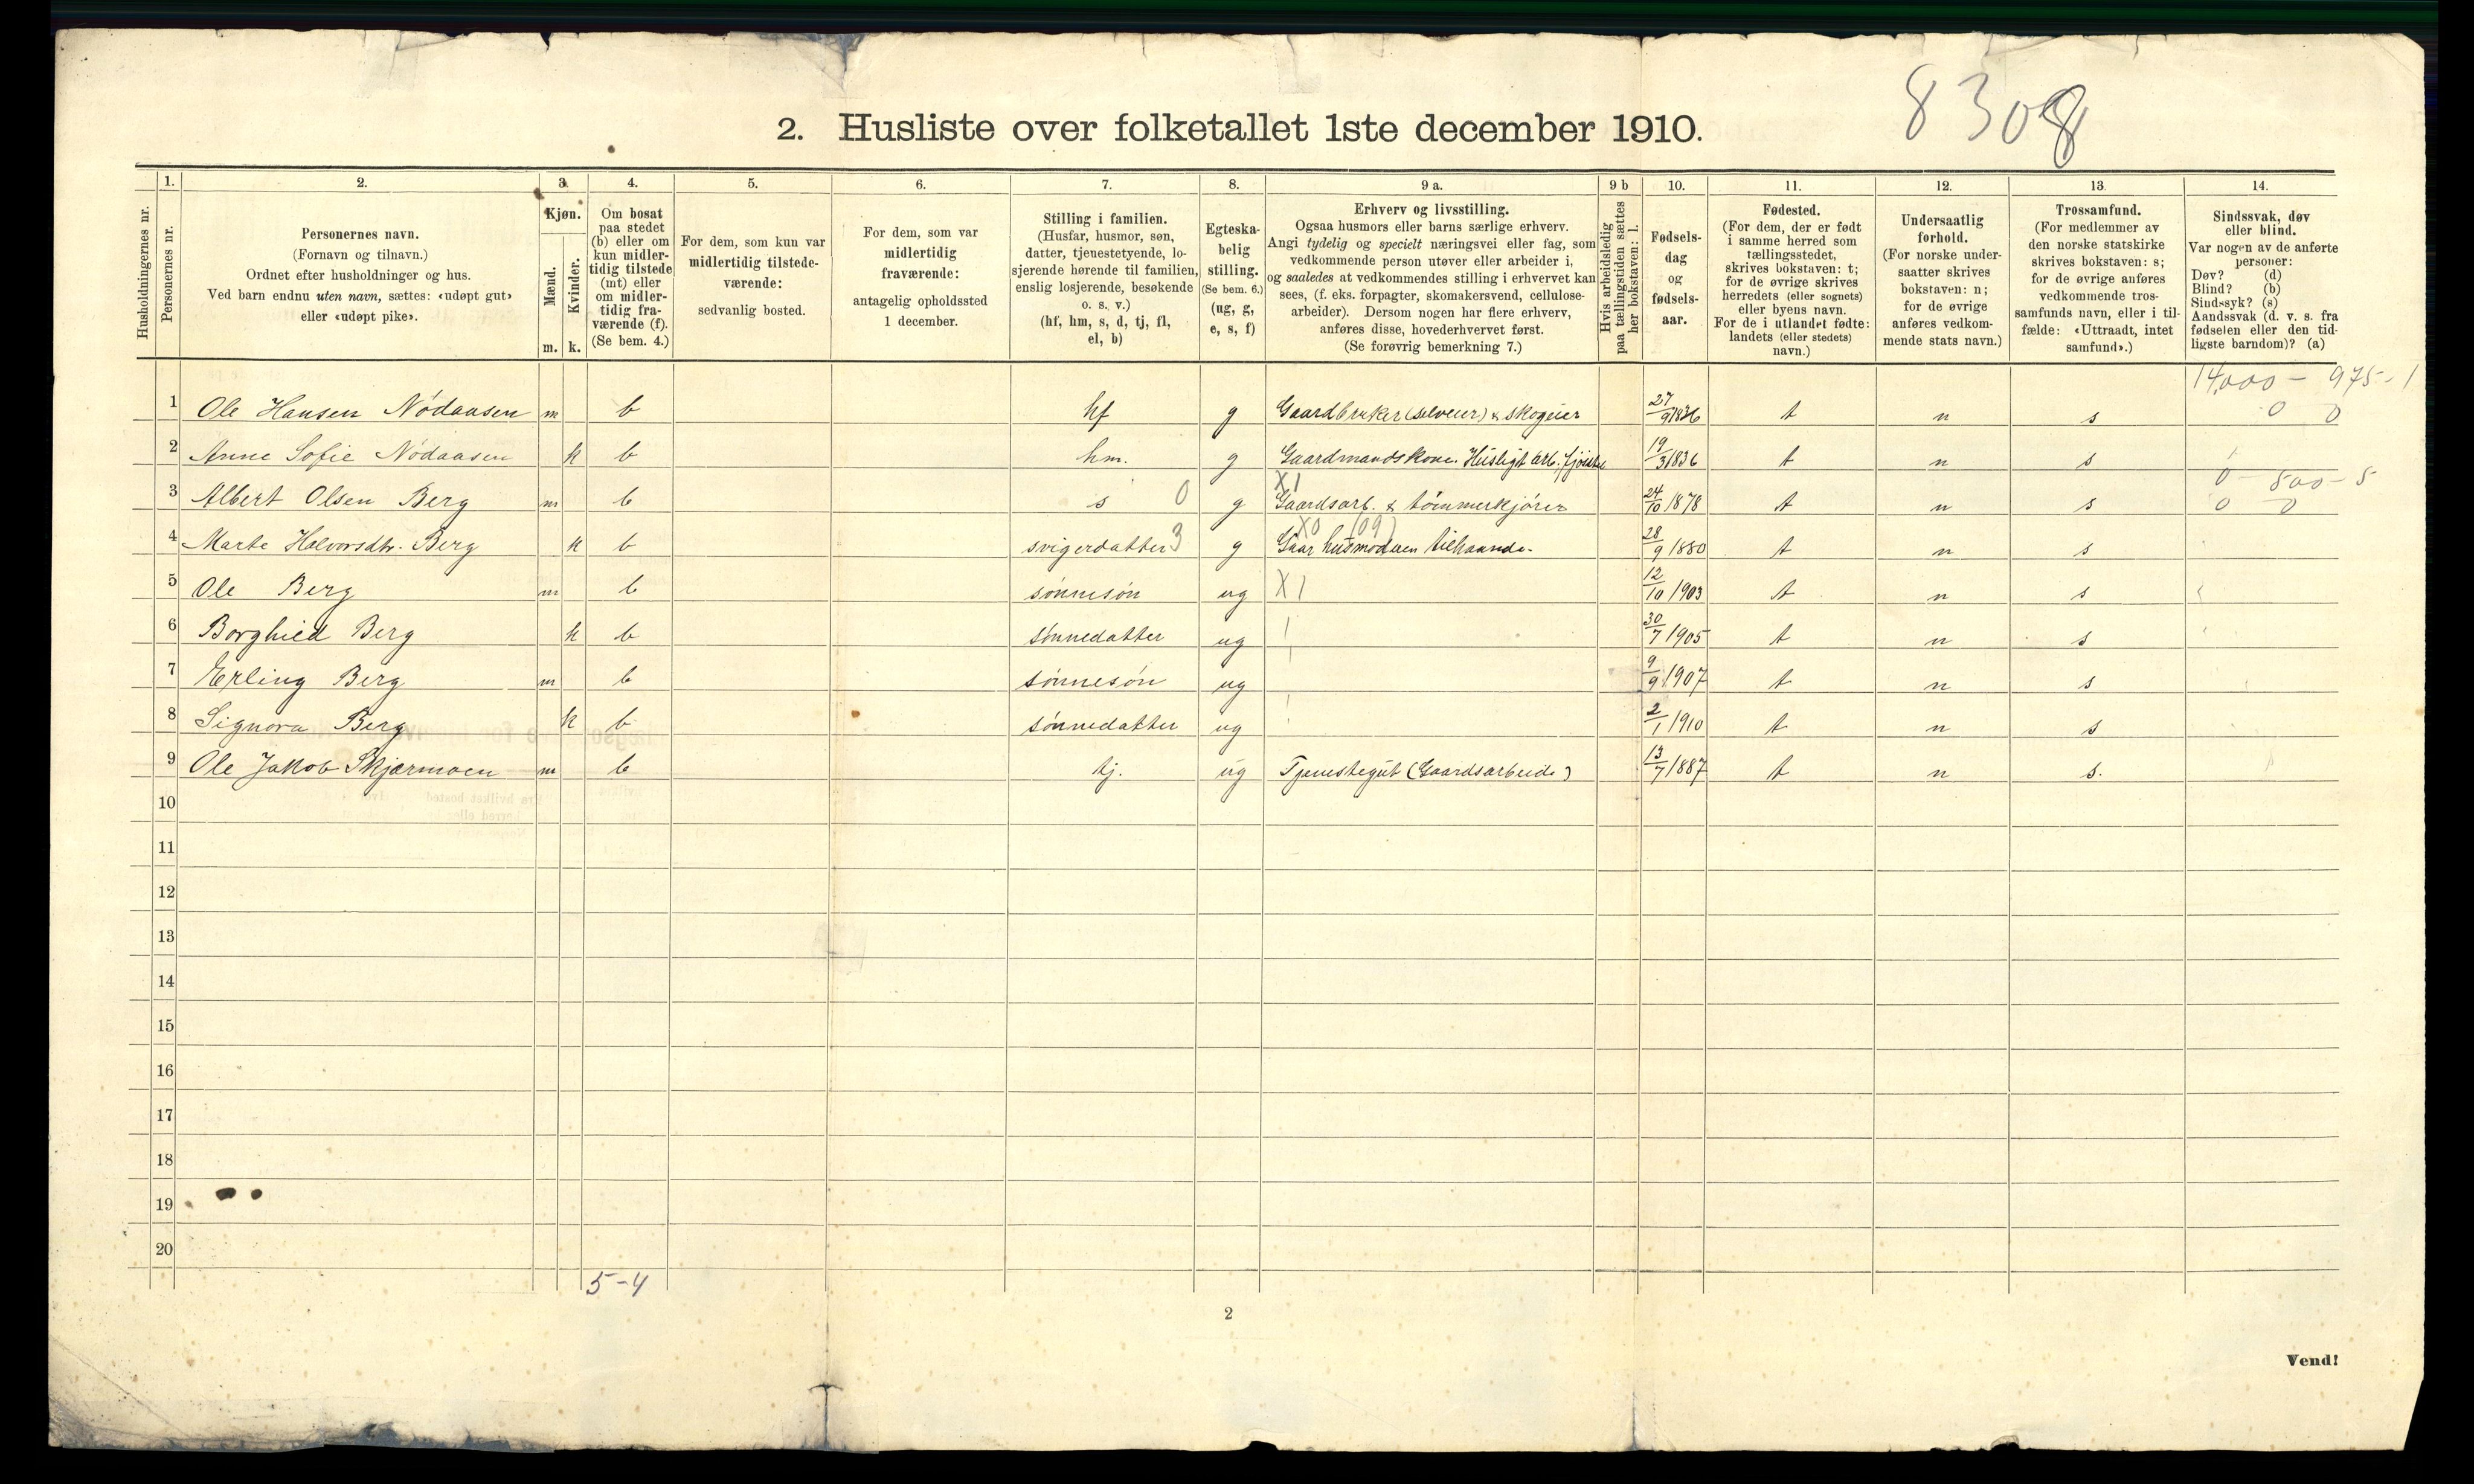 8308
2. Husliste over folketallet 1ste december 1910.
Husholdningernes nr.
1.
Personernes nr.
2.
Personernes navn.
(Fornavn og tilnavn.)
Ordnet efter husholdninger og hus.
Ved barn endnu uten navn, sættes: «udøpt gut»
eller «udøpt pike».
3.
Kjøn.
Mænd.
Kvinder.
m. k.
4.
Om bosat
paa stedet
(b) eller om
kun midler-
tidig tilstede
(mt) eller
om midler-
tidig fra-
værende (f).
(Se bem. 4.)
5.
For dem, som kun var
midlertidig tilstede-
værende:
sedvanlig bosted.
6.
For dem, som var
midlertidig
fraværende:
antagelig opholdssted
1 december.
7.
Stilling i familien.
(Husfar, husmor, søn,
datter, tjenestetyende, lo-
sjerende hørende til familien,
enslig losjerende, besøkende
o. s. v.)
(hf, hm, s, d, tj, fl,
el, b)
8.
Egteska-
belig
stilling.
(Se bem. 6.)
(ug, g,
e, s, f)
9 a.
Erhverv og livsstilling.
Ogsaa husmors eller barns særlige erhverv.
Angi tydelig og specielt næringsvei eller fag, som
vedkommende person utøver eller arbeider i,
og saaledes at vedkommendes stilling i erhvervet kan
sees, (f. eks. forpagter, skomakersvend, cellulose-
arbeider). Dersom nogen har flere erhverv,
anføres disse, hovederhvervet først.
(Se forøvrig bemerkning 7.)
9 b
Hvis arbeidsledig
paa tællingstiden sættes
her bokstaven: l.
10.
Fødsels-
dag
og
fødsels-
aar.
11.
Fødested.
(For dem, der er født
i samme herred som
tællingsstedet,
skrives bokstaven: t;
for de øvrige skrives
herredets (eller sognets)
eller byens navn.
For de i utlandet fødte:
landets (eller stedets)
navn.)
12.
Undersaatlig
forhold.
(For norske under-
saatter skrives
bokstaven: n;
for de øvrige
anføres vedkom-
mende stats navn.)
13.
Trossamfund.
(For medlemmer av
den norske statskirke
skrives bokstaven: s;
for de øvrige anføres
vedkommende tros-
samfunds navn, eller i til-
fælde: «Uttraadt, intet
samfund».)
14.
Sindssvak, døv
eller blind.
Var nogen av de anførte
personer:
Døv? (d)
Blind? (b)
Sindssyk? (s)
Aandssvak (d. v. s. fra
fødselen eller den tid-
ligste barndom)? (a)
14,000 - 975 - 1
1 Ole Hansen Nödaasen m b hf g Gaardbruker (selveier) & skogeier 27/9 1836 t n s 0 0
2 Anne Sofie Nödaasen k b hm. g Gaardmandskone. Husligt arb. 19/3 1836 t n s
0 - 500 - 5
3 Albert Olsen Berg m b s 0 g X1 Gaardsarb. & tömmerkjörer 24/10 1878 t n s 0 0
4 Marte Halvorsdtr. Berg k b svigerdatter 3 g X0 (09) Gaar husmoderen tilhaande. 28/9 1880 t n s
5 Ole Berg m b sönnesön ug X1 12/10 1903 t n s
6 Borghild Berg k b sönnedatter ug 30/7 1905 t n s
7 Erling Berg m b sönnesön ug 9/9 1907 t n s
8 Signora Berg k b sönnedatter ug 2/1 1910 t n s
9 Ole Jakob Skjærmoen m b tj. ug Tjenestegut (Gaardsarbeide) 13/7 1887 t n s.
10
11
12
13
14
15
16
17
18
19
20
5-4
2
Vend!